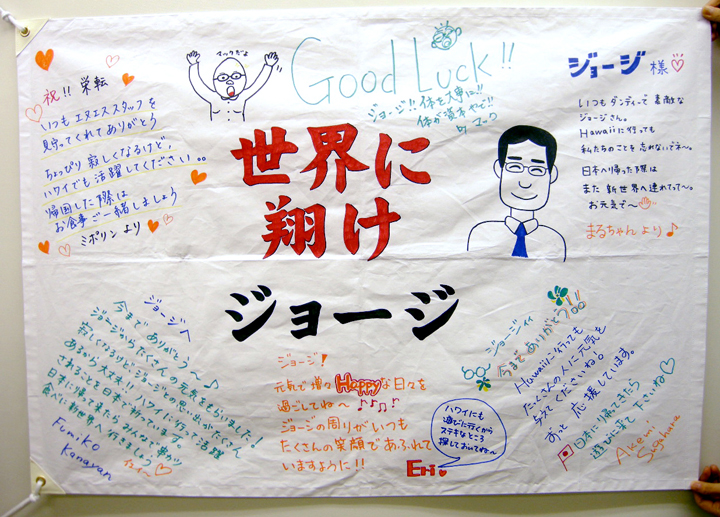 祝!! 栄転
いつもエヌエススタッフを
見守ってくれてありがとう
ちょっぴり寂しくなるけど、
ハワイでも活躍してください。。
帰国した際は
お食事ご一緒しましょう
ミポリンより
マックだよ
Good Luck!!
ジョージ!! 体を大事に!!
体が資本やで!!
by マーク
ジョージ様
いつもダンディーで素敵な
ジョージさん。
Hawaiiに行っても
私たちのことを忘れないでネ〜。
日本へ帰った際は
また新世界へ連れてって〜。
お元気で〜
まるちゃんより♪
世界に
翔け
ジョージ
ジョージへ
今までありがとう〜♪
ジョージからたくさんの元気をもらいました!
寂しくなるけどジョージとの思い出がたくさん
あるから大丈夫!! ハワイに行って活躍
されることを日本で祈っています。
日本に帰って来たらみんなで、串カツ
食べに新世界へ行きましょう
Fumiko
Kanayan
ジョージ!
元気で増々Happyな日々を
過ごしてね〜♪♪♫♪
ジョージの周りがいつも
たくさんの笑顔であふれて
いますように!!
Eri
ハワイにも
遊びに行くから
ステキなところ
探しておいてね〜
ジョージィィ
今までありがとう!!
Hawaiiに行っても
たくさんの人に元気を
与えてくださいね!
ずっと応援しています。
日本に帰ってきたら
遊びに来て下さいね♡
Akemi
Sugahara